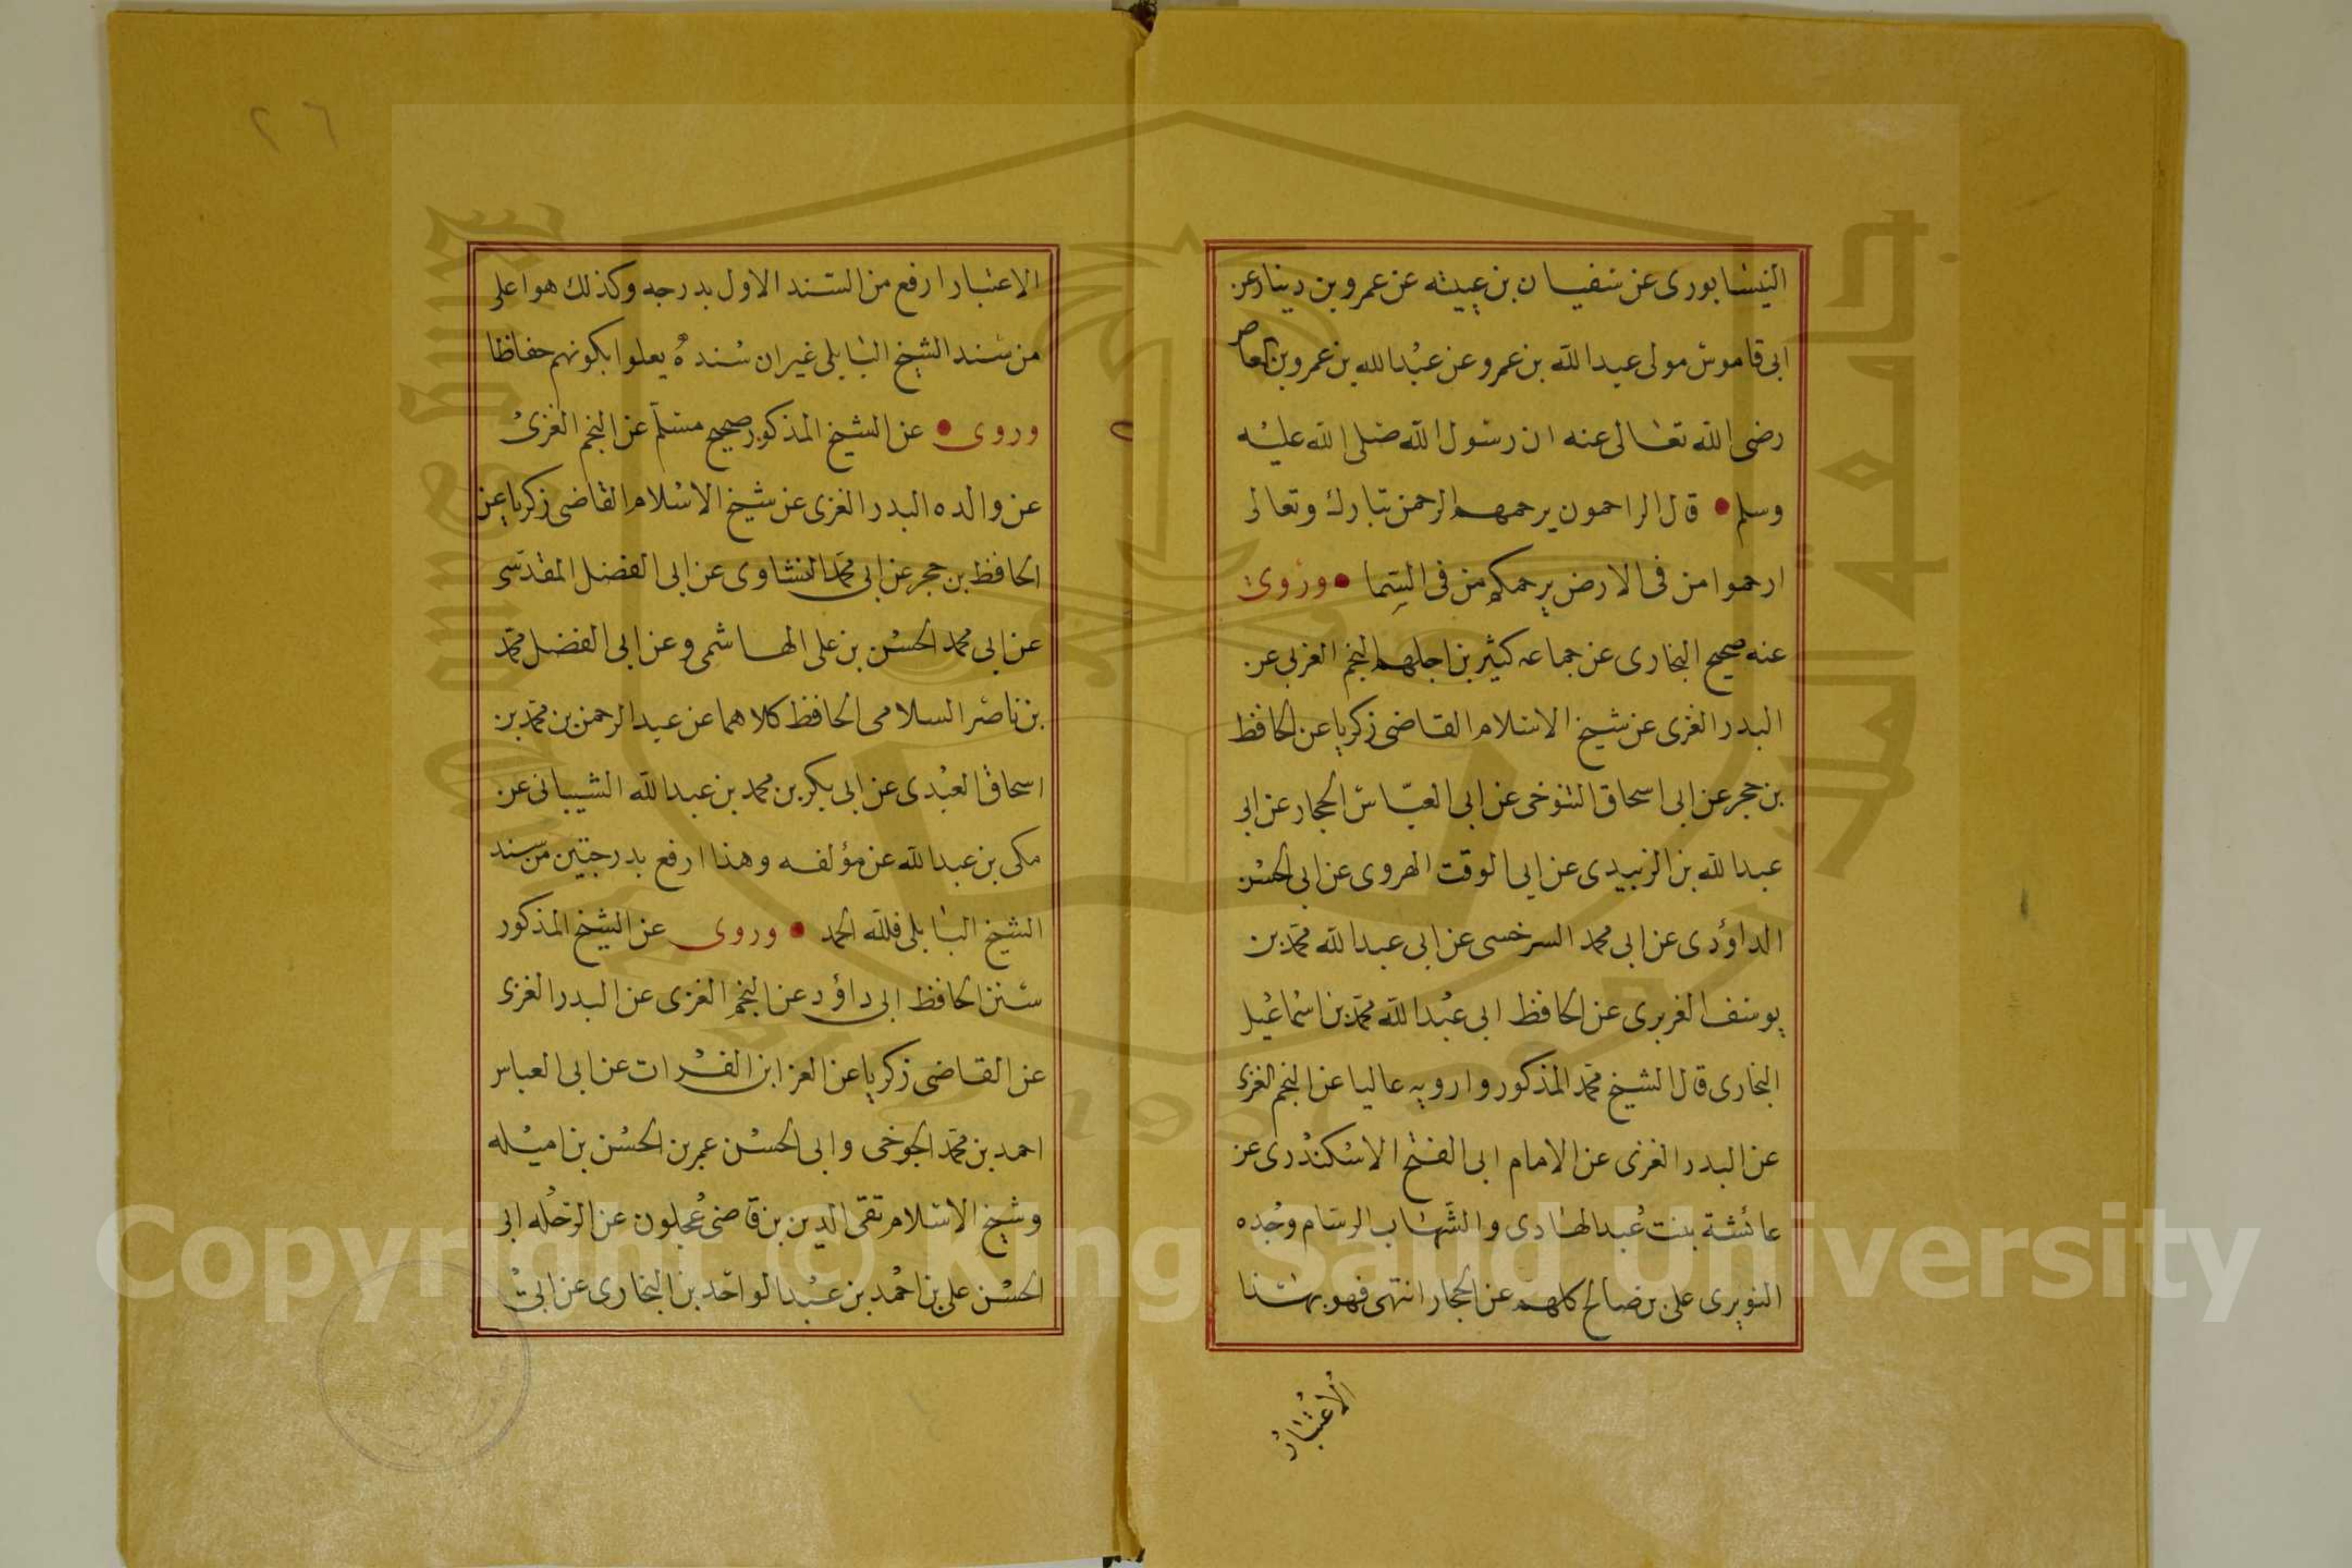 النيشابورى عن سفيان بن عيينه عن عمرو بن دينار عن
ابى قاموس مولى عبد الله بن عمرو عن عبد الله بن عمرو بن العاص
رضى الله تعالى عنه ان رسول الله صلى الله عليه
وسلم • قال الراحمون يرحمهم الرحمن تبارك وتعالى
ارحموا من فى الارض يرحمكم من فى السما • وروى
عنه صحيح البخارى عن جماعه كثير بن اجلهم النجم الغزى عن
البدر الغزى عن شيخ الاسلام القاضى زكريا عن الحافظ
بن حجر عن ابى اسحاق التنوخى عن ابى العباس الحجار عن ابى
عبد الله بن الزبيدى عن ابى الوقت الهروى عن ابى الحسن
الداؤدى عن ابى محمد السرخسى عن ابى عبد الله محمد بن
يوسف الفربرى عن الحافظ ابى عبد الله محمد بن اسماعيل
البخارى قال الشيخ محمد المذكور وارويه عاليا عن النجم الغزى
عن البدر الغزى عن الامام ابى الفتح الاسكندرى عن
عائشة بنت عبد الهادى والشهاب الرسام وجده
النويرى على بن صالح كلهم عن الحجار انتهى فهو بهذا
الاعتبار
٢٦
الاعتبار ارفع من السند الاول بدرجه وكذلك هو اعلى
من سند الشيخ البابلى غير ان سنده يعلوا بكونهم حفاظا
وروى • عن الشيخ المذكور صحيح مسلم عن النجم الغزى
عن والده البدر الغزى عن شيخ الاسلام القاضى زكريا عن
الحافظ بن حجر عن ابى محمد النشاوى عن ابى الفضل المقدسى
عن ابى محمد الحسن بن على الهاشمى وعن ابى الفضل محمد
بن ناصر السلامى الحافظ كلاهما عن عبد الرحمن بن محمد بن
اسحاق العبدى عن ابى بكر بن محمد بن عبد الله الشيبانى عن
مكى بن عبد الله عن مؤلفه وهذا ارفع بدرجتين من سند
الشيخ البابلى فلله الحمد • وروى عن الشيخ المذكور
سنن الحافظ ابى داؤد عن النجم الغزى عن البدر الغزى
عن القاضى زكريا عن العز ابن الفرات عن ابى العباس
احمد بن محمد الجوخى وابى الحسن عمر بن الحسن بن اميله
وشيخ الاسلام تقى الدين بن قاضى عجلون عن الرحله ابى
الحسن على بن احمد بن عبد الواحد بن البخارى عن ابى
Copyright © King Saud University
1957